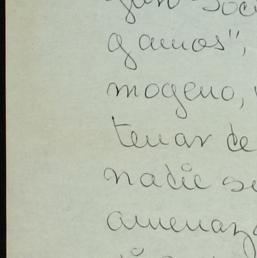 gamos",
mogeno,
tenar de
nadie se
amenaza